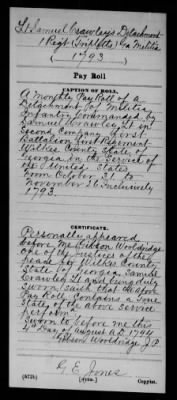 Lt Samuel Crawleys Detachment
1 Regt (Triplett's) Ga Militia
(1793)
Pay Roll
CAPTION OF ROLL.
A monthly Pay Roll of a
Detachment of Militia
Infantry Commanded by
Samuel Crawley Lt in
Second Company First
Battalion First Regiment
Wilkes County State of
Georgia in the Service of
the United States
from October 12 to
November 26 inclusively
1793.
CERTIFICATE.
Personally appeared
before me Gibson Wooldridge
one of the Justices of the
Peace for Wilkes County
State of Georgia Samuel
Crawley Lt and being duly
sworn saith that the afore
Pay Roll Contains a true
State of the above service
perform'd
Sworn to before me this
4th day of August A.D. 1794
Gibson Wooldridge J.P.
G E Jones
(573b)
Copyist.